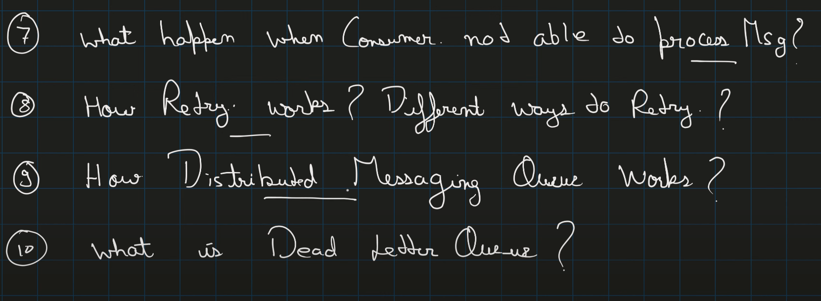 ⑦ what happen when Consumer. not able to proces Msg?
⑧ How Retry. works? Different ways to Retry.?
⑨ How Distributed .Messaging Queue works?
⑩ what is Dead Letter Queue?